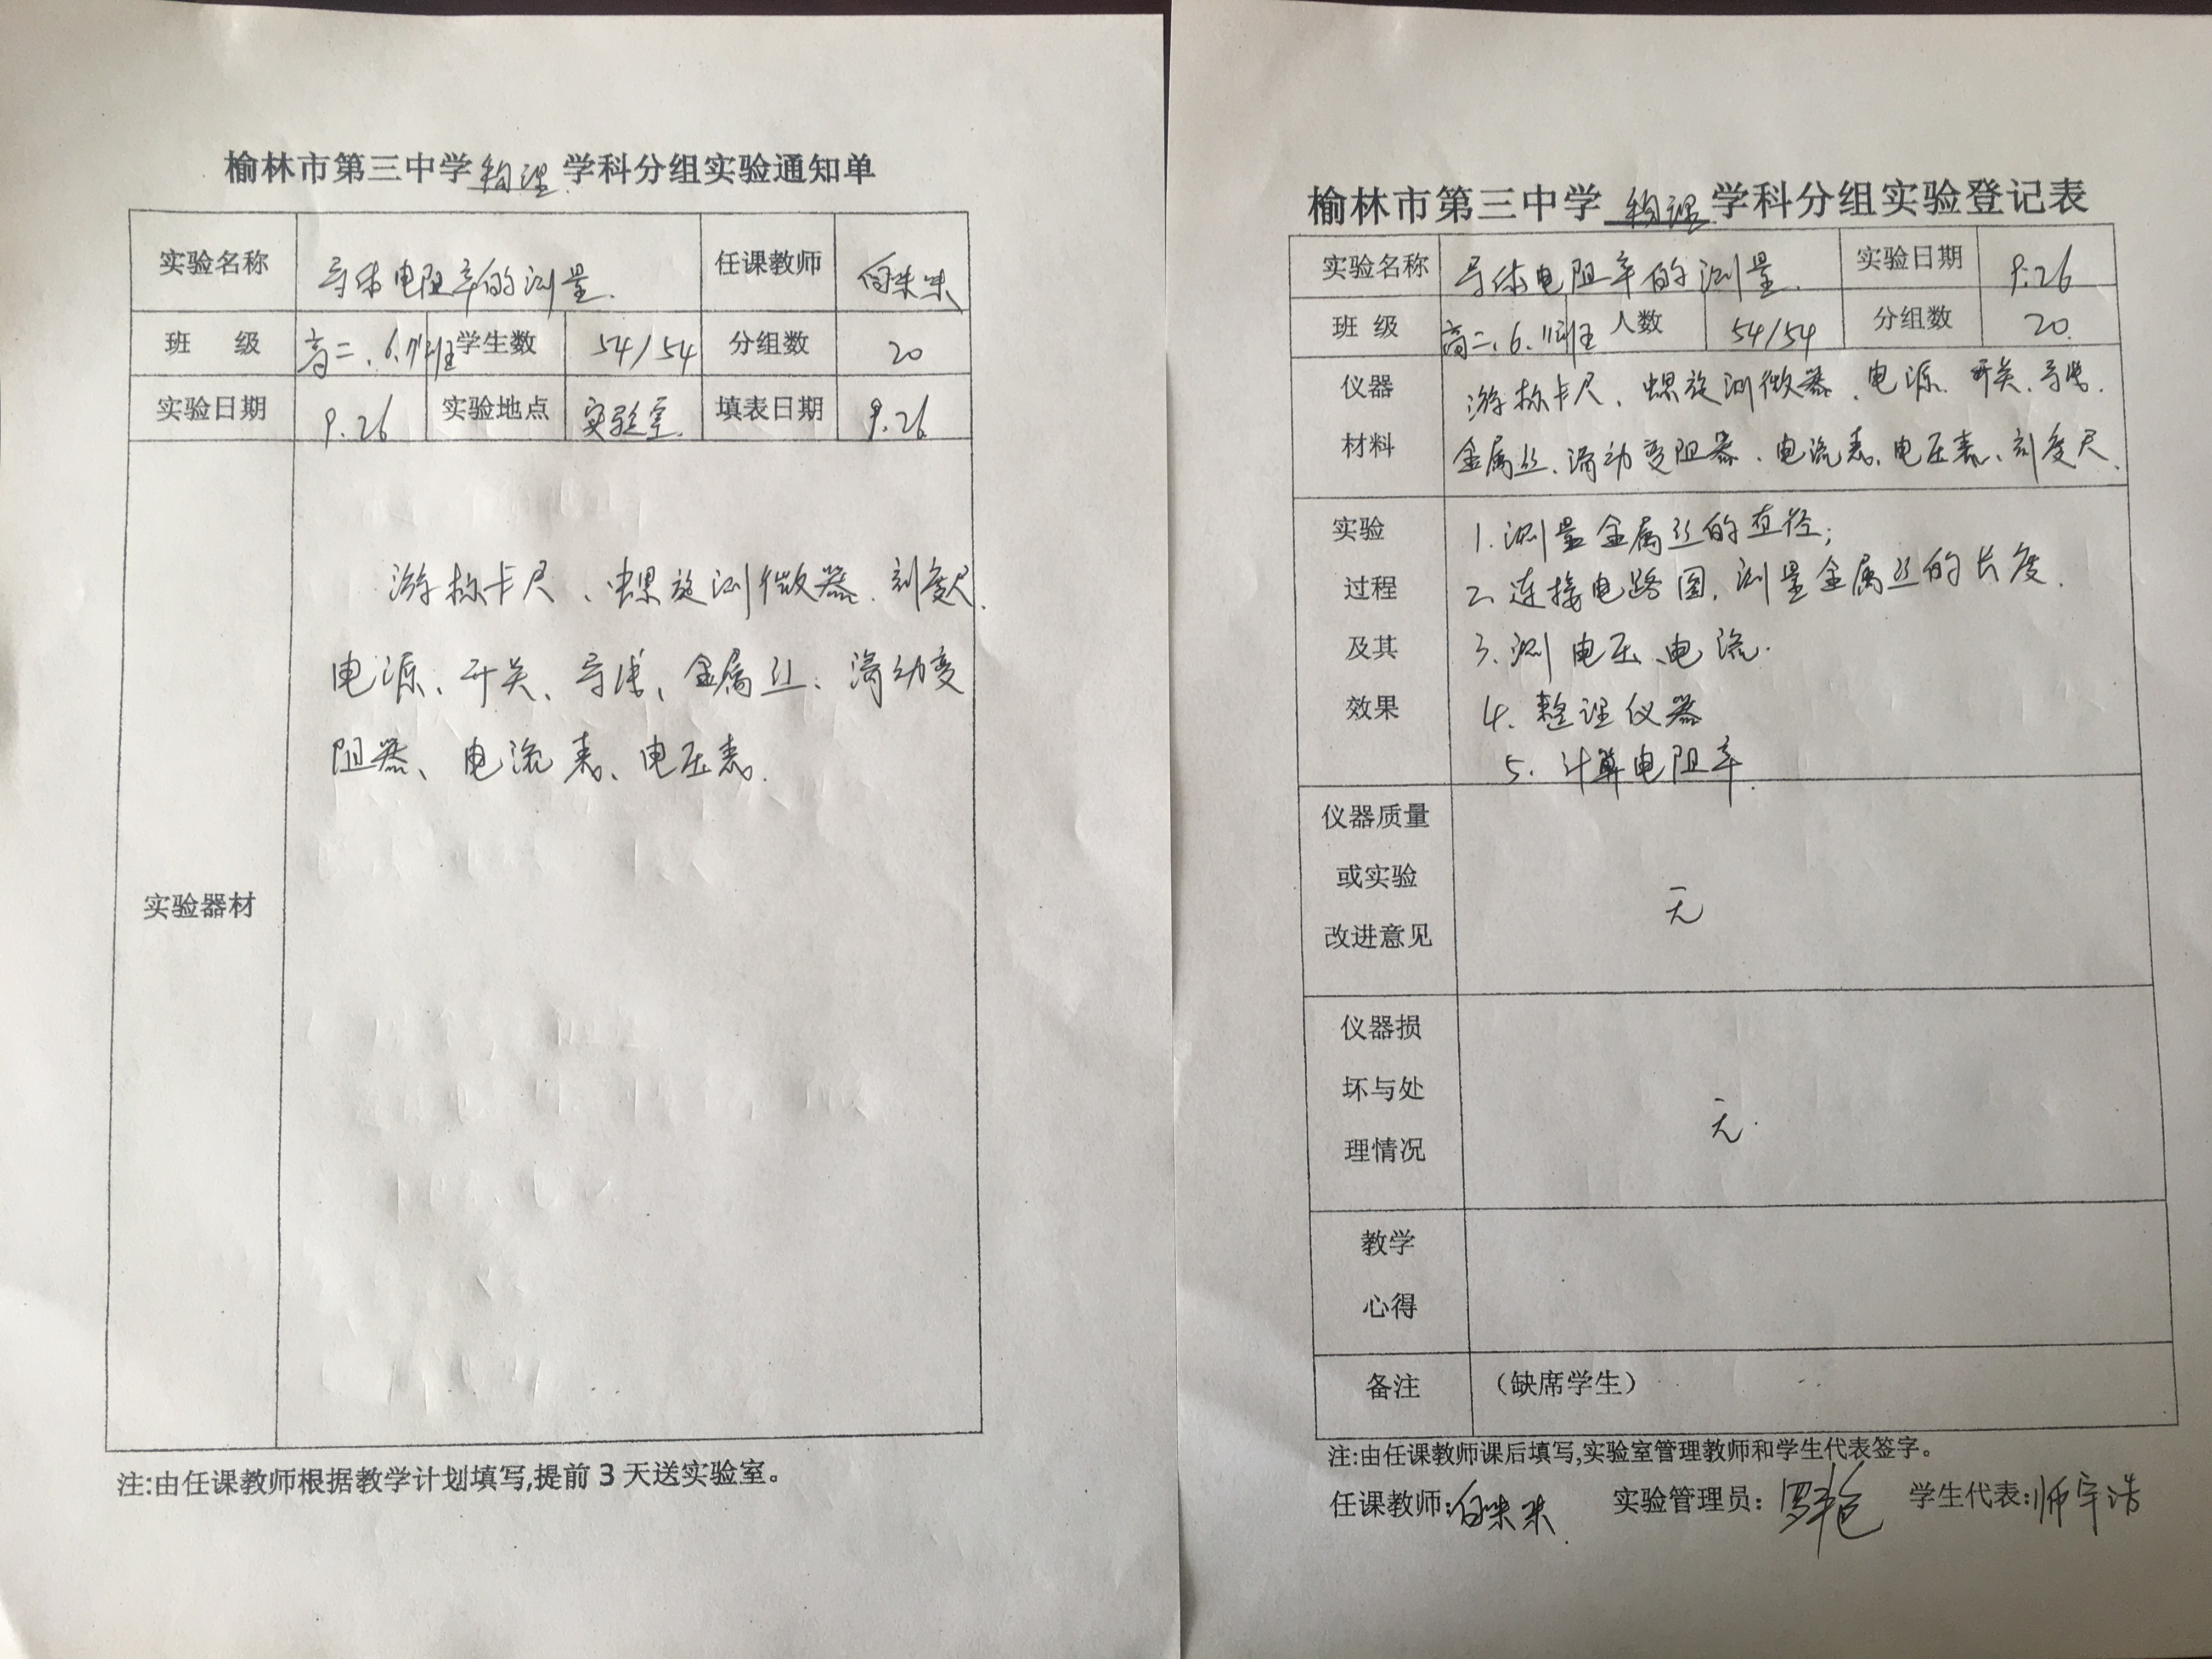 榆林市第三中学物理学科分组实验通知单
实验名称 导体电阻率的测量. 任课教师 白味味
班 级 高二.6.11班 学生数 54/54 分组数 20
实验日期 9.26 实验地点 实验室. 填表日期 9.26
实验器材
游标卡尺、螺旋测微器、刻度尺、
电源、开关、导线、金属丝、滑动变
阻器、电流表、电压表.
注:由任课教师根据教学计划填写,提前3天送实验室。
榆林市第三中学物理学科分组实验登记表
实验名称 导体电阻率的测量. 实验日期 9.26
班 级 高二.6.11班 人数 54/54 分组数 20.
仪器 游标卡尺、螺旋测微器、电源、开关、导线.
材料 金属丝、滑动变阻器、电流表、电压表、刻度尺、
实验 1.测量金属丝的直径;
过程 2.连接电路图,测量金属丝的长度.
及其 3.测电压、电流.
效果 4.整理仪器
5.计算电阻率.
仪器质量
或实验 无
改进意见
仪器损
坏与处 无.
理情况
教学
心得
备注 （缺席学生）
注:由任课教师课后填写,实验室管理教师和学生代表签字。
任课教师: 白味味. 实验管理员: 学生代表: 师宇浩